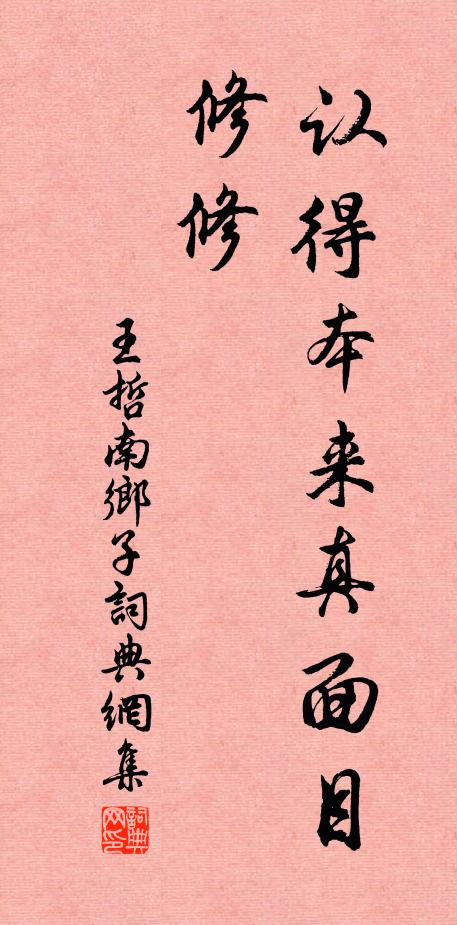 认得本来真面目
修修
王哲南鄉子詞典網集
詞典网印